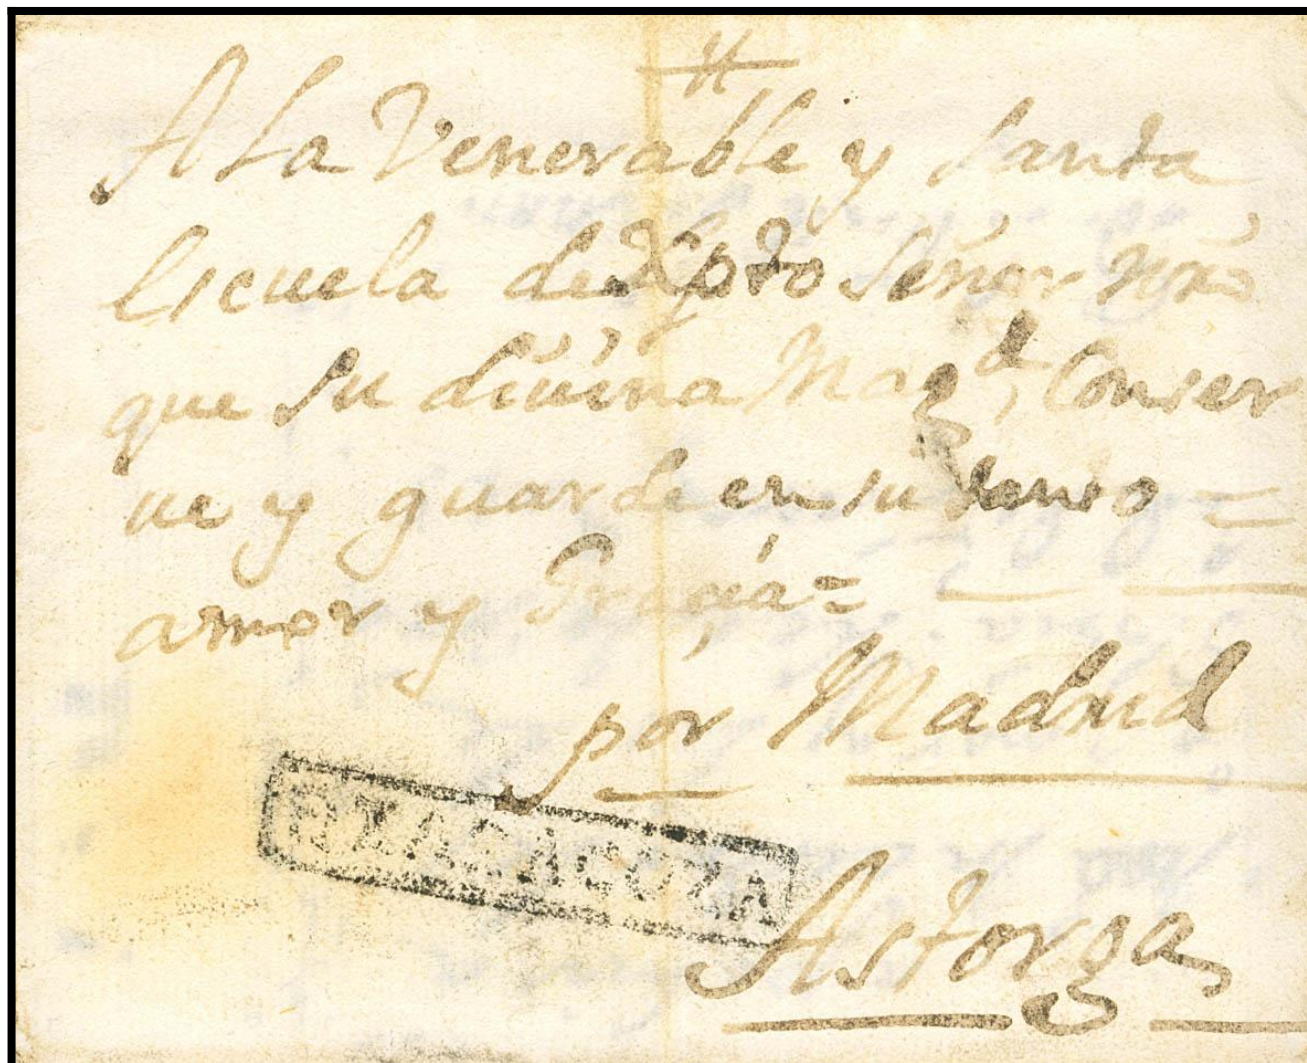 #
A La Venerable y Santa
Escuela de Xpto Señor nrõ
que su divina Magd, Conser
ve y guarde en su santo =
amor y Gracia =
por Madrid
ZARAGOZA
Astorga